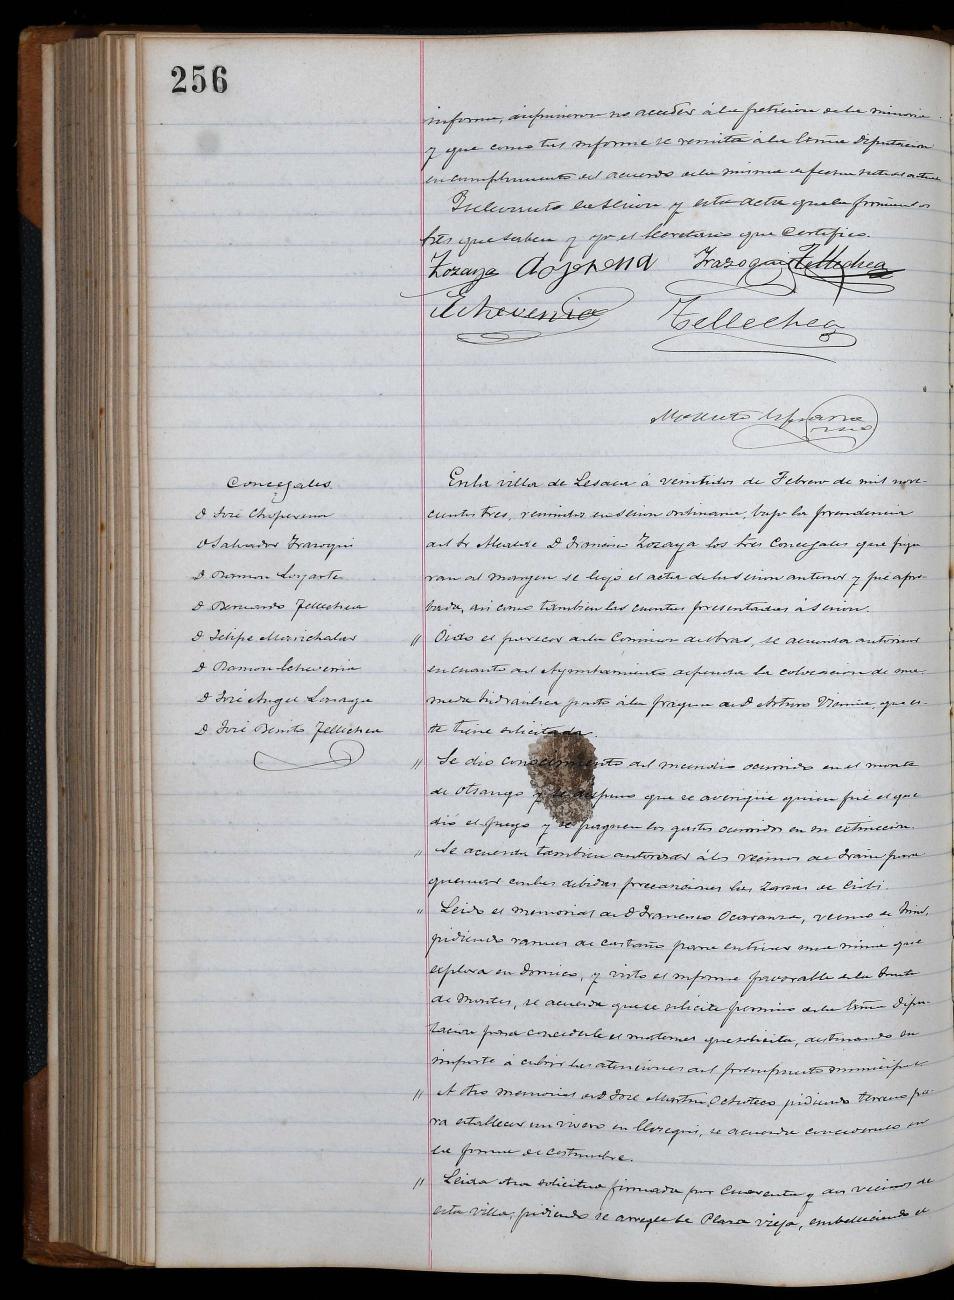 256
informe, no acceder á la peticion de la minoria
y que como tal informe se remita á la Excma Diputacion
en cumplimiento del acuerdo de la misma de fecha
la sesion y esta acta que la firman los
tres que saben y yo el Secretario que Certifico.
Zozaya Irazoqui Tellechea
Echeverria Tellechea
Modesto
Concejales
D José
D Salvador Irazoqui
D Ramon Loyarte
D Bernardo Tellechea
D Felipe Marichalar
D Ramon Echeverria
D José Angel
D José Benito Tellechea
En la villa de Lesaca á veintidos de Febrero de mil nove-
cientos tres, reunidos en sesion ordinaria, bajo la presidencia
del Sr Alcalde D Francisco Zozaya los Sres Concejales que figu
ran al margen se leyó el acta de la sesion anterior y fué apro-
bada, asi como tambien las cuentas presentadas á sesion.
" Oido el parecer de la Comision de obras, se acuerda autorizar
en cuanto del Ayuntamiento dependa la colocacion de una
rueda hidráulica junto á la fragua de D Arturo que es-
te tiene solicitada.
" Se dió conocimiento del incendio ocurrido en el monte
de Otsango y se dispuso que se averigüe quien fué el que
dió el fuego y se paguen los gastos ocurridos en su extincion.
" Se acuerda tambien autorizar á los vecinos de para
quemar con las debidas precauciones las zarzas de
" Leido el memorial de D Francisco Ocarranza, vecino de
pidiendo ramas de castaño para entibar una mina que
esplora en Domico, y visto el informe favorable de la Junta
de Montes, se acuerda que se solicite permiso de la Excma Dipu-
tacion para concederle el material que solicita, destinando su
importe á cubrir las atenciones del presupuesto municipal
" A otro memorial de D José Martin Ochoteco pidiendo terreno pa-
ra establecer un vivero en se acuerda concederselo en
la forma de costumbre.
" Leida otra solicitud firmada por cuarenta y dos vecinos de
esta villa, pidiendo se arregle la Plaza vieja, embelleciendo el